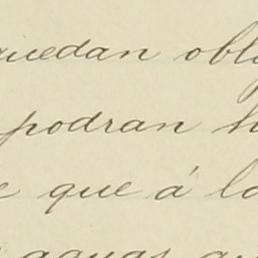 quedan obl
podran h
que á lo
aguas